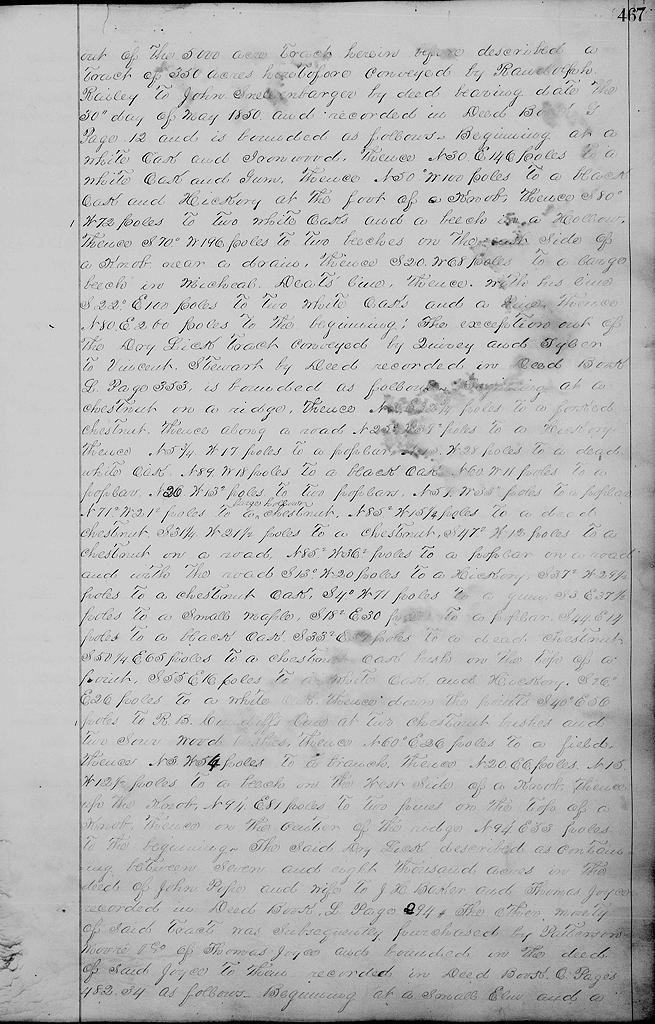 467
out of the 5000 acre tract herein before described a
tract of 350 acres heretofore conveyed by Randolph
Railey to John Snelenbarger by deed bearing date the
30" day of May 1850 and recorded in Deed Book G
Page 12 and is bounded as follows - Beginning at a
white Oak and Ironwood, Thence N30 E 146 poles to a
white Oak and Gum, Thence N50° W100 poles to a black
Oak and Hickory at the foot of a Knob, Thence S80°
W72 poles to two white Oaks and a beech in a Hollow,
Thence S70° W196 poles to two beeches on the side of
a Knob near a drain, Thence S20 W68 poles to a large
beech in Micheal Deats line, Thence with his line
S22° E100 poles to two white Oaks and a Thence
N80 E260 poles to the beginning; The exception out of
the Dry Lick tract conveyed by Quirey and Tyler
to Vincent Stewart by Deed recorded in Deed Book
L. Page 333, is bounded as follows Beginning at a
chestnut on a ridge, Thence poles to a forked
chestnut, Thence along a road N25° poles to a Hickory
Thence N5¾ W17 poles to a poplar, W28 poles to a dead
white Oak, N89 W18 poles to a black Oak N60 W11 poles to a
poplar, N26 W13° poles to two poplars, poles to a poplar
N71° W21° poles to a large hollow chestnut, N85° W15¼ poles to a dead
chestnut, S31¼ W21½ poles to a chestnut, S47° W12 poles to a
chestnut on a road N85° W36° poles to a poplar on a road
and with the road S13° W20 poles to a Hickory, S37° W29½
poles to a chestnut Oak, S4° W71 poles to a gum, S3 E37½
poles to a Small maple, S18° E30 poles to a poplar S44 E14
poles to a black Oak S33° poles to a dead chestnut
S50¼ E65 poles to a chestnut Oak bush on the top of a
point, S55 E16 poles to a white Oak and Hickory, S26°
E26 poles to a white Oak Thence down the points S40° E56
poles to R. B. line at two chestnut bushes and
two Sour wood bushes, Thence N60° E26 poles to a field,
Thence N3 W54 poles to a branch, Thence N20 E6 poles, N15
W12½ poles to a beech on the West Side of a Knob, Thence
up the Knob, N94 E81 poles to two pines on the top of a
Knob, Thence on the center of the ridge N94 E33 poles
to the beginning - The Said Dry Lick described as contain
ing between Seven and eight thousand acres in the
deed of John Pope and wife to J. D. Bosler and Thomas Joyce
recorded in Deed Book L Page 294 & The other moiety
of Said tract was Subsequently purchased by Patterson
Moore & Co of Thomas Joyce and bounded in the deed
of Said Joyce to them recorded in Deed Book O Pages
482. 34 as follows - Beginning at a Small Elm and a